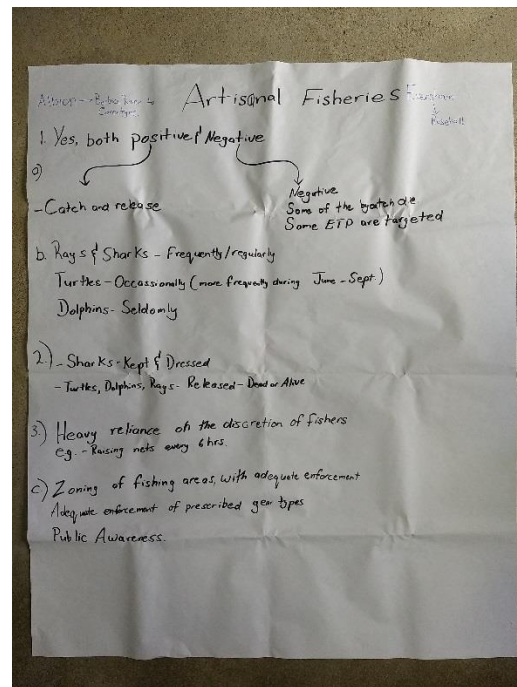 Artisanal Fisheries
1. Yes, both positive & Negative
a)
- Catch and release
Negative
Some of the bycatch die
Some ETP are targeted
b. Rays & Sharks - Frequently/regularly
Turtles - Occassionally (more frequently during June - Sept.)
Dolphins - Seldomly
2.) - Sharks - Kept & Dressed
- Turtles, Dolphins, Rays - Released - Dead or Alive
3.) Heavy reliance on the discretion of fishers
eg. - Raising nets every 6 hrs.
c) Zoning of fishing areas, with adequate enforcement
Adequate enforcement of prescribed gear types
Public Awareness.